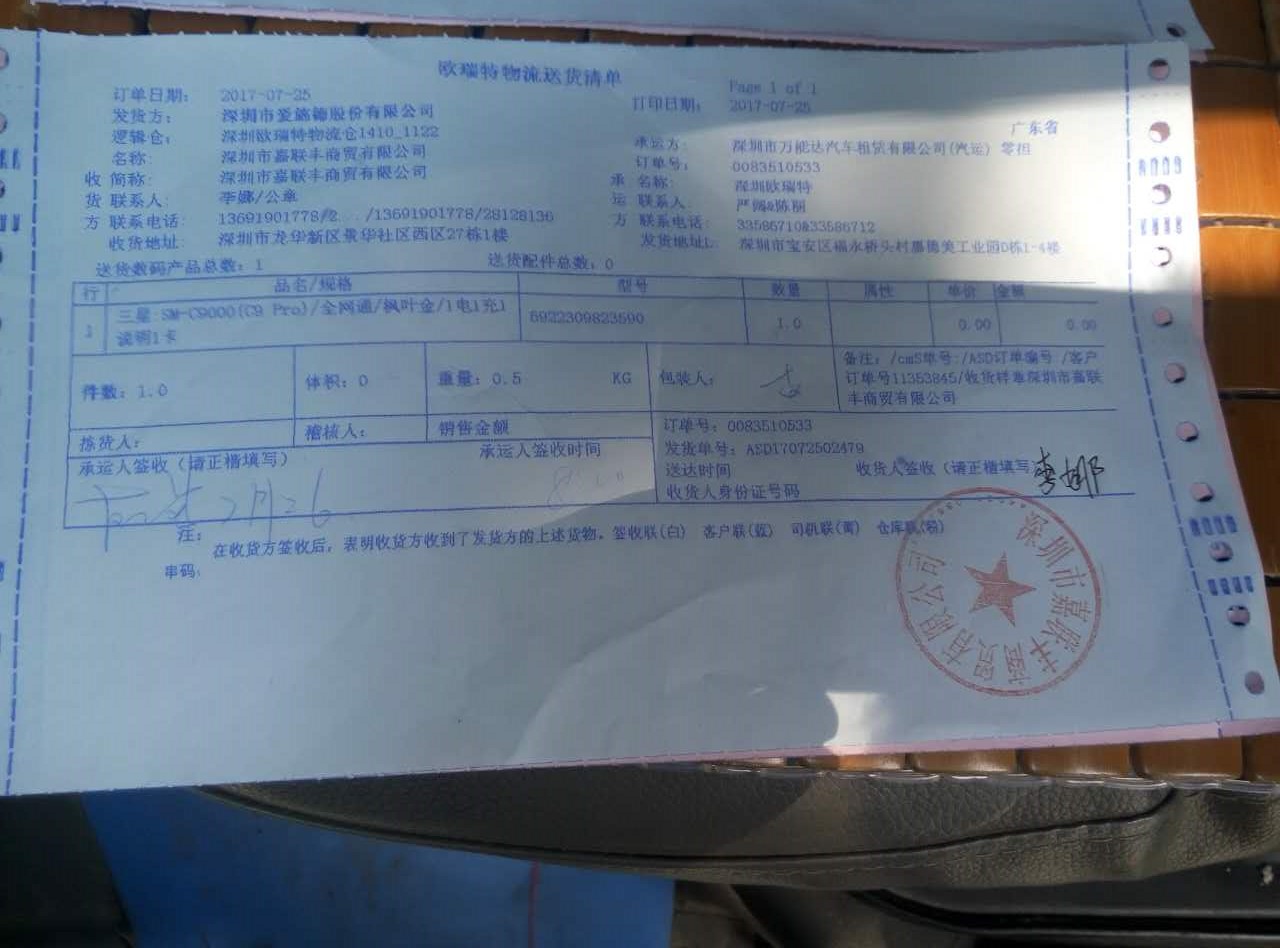 欧瑞特物流送货清单
Page 1 of 1
订单日期： 2017-07-25
打印日期： 2017-07-25
发货方： 深圳市爱施德股份有限公司
广东省
逻辑仓： 深圳欧瑞特物流仓1410_1122
承运方： 深圳市万能达汽车租赁有限公司(汽运) 零担
名称： 深圳市嘉联丰商贸有限公司
订单号： 0083510533
收 简称： 深圳市嘉联丰商贸有限公司
承 名称： 深圳欧瑞特
货 联系人： 李娜/公章
运 联系人： 严阔&陈丽
方 联系电话： 13691901778/ /13691901778/28128136
方 联系电话： 33586710&33586712
收货地址： 深圳市龙华新区景华社区西区27栋1楼
发货地址L： 深圳市宝安区福永桥头村富德美工业园D栋1-4楼
送货数码产品总数：1
送货配件总数：0
行 品名/规格 型号 数量 属性 单价 金额
1 三星 SM-C9000(C9 Pro)/全网通/枫叶金/1电1充1 6922309823590 1.0 0.00 0.00
说明1卡
件数：1.0 体积：0 重量：0.5 KG 包装人：
备注：/cmS单号:/ASD订单编号 /客户
订单号11353845/收货样章深圳市嘉联
丰商贸有限公司
拣货人： 稽核人： 销售金额
订单号：0083510533
发货单号：ASD17072502479
承运人签收（请正楷填写） 承运人签收时间
送达时间 收货人签收（请正楷填写） 李娜
收货人身份证号码
7月26
注：
在收货方签收后，表明收货方收到了发货方的上述货物。签收联(白) 客户联(蓝) 司机联(黄) 仓库联(粉)
串码：
深圳市嘉联丰商贸有限公司